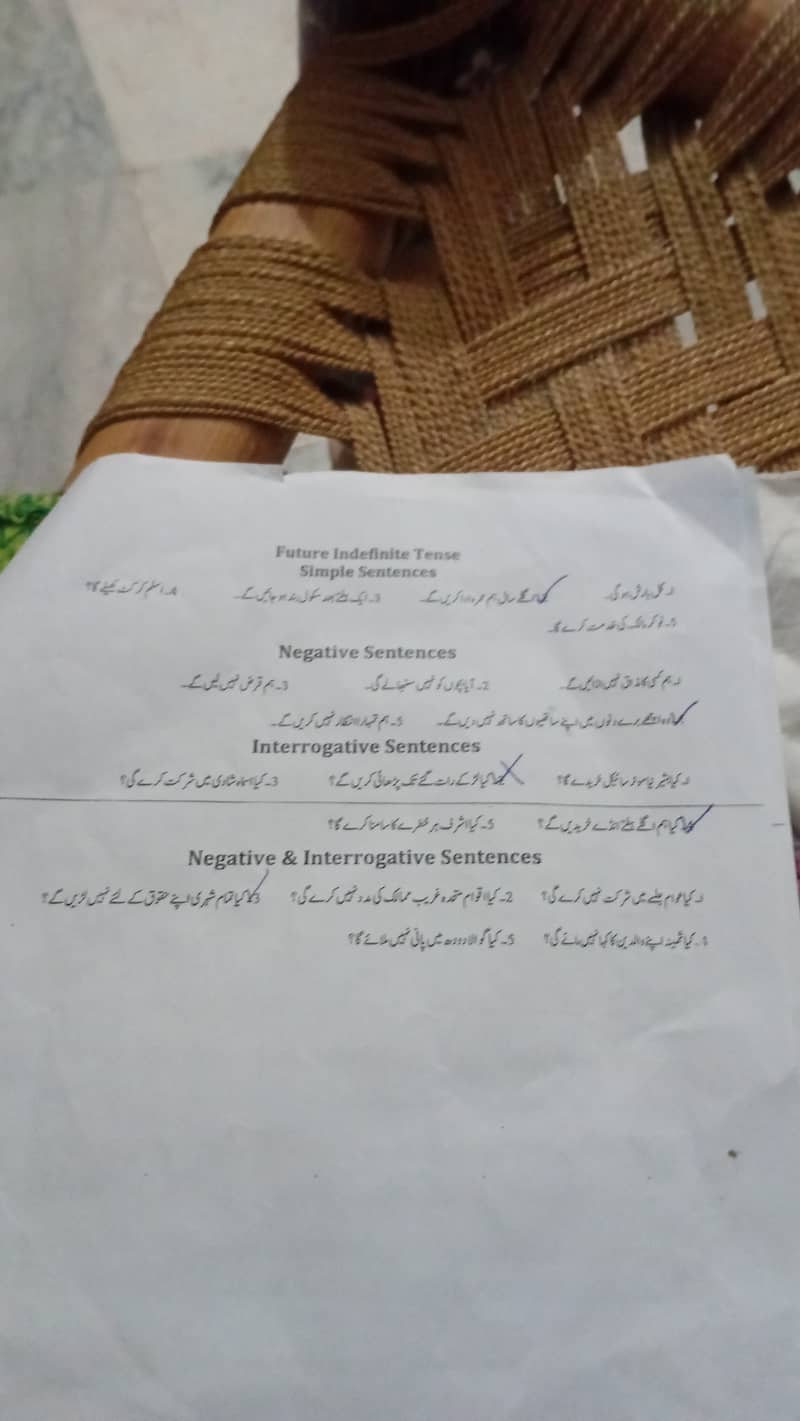 Future Indefinite Tense
Simple Sentences
1۔ کل بارش ہو گی۔ اگلے سال ہم عمرہ ادا کریں گے۔ 3۔ ایک ہفتے بعد سکول بند ہو جائیں گے۔ 4۔ اسلم کرکٹ کھیلے گا؟
5۔ نوکر مالک کی خدمت کرے گا۔
Negative Sentences
1۔ ہم کسی کا مذاق نہیں اڑائیں گے۔ 2۔ آیا بچوں کو نہیں سنبھالے گی۔ 3۔ ہم قرض نہیں لیں گے۔
برے دنوں میں اپنے ساتھیوں کا ساتھ نہیں دیں گے۔ 5۔ ہم تمہارا انتظار نہیں کریں گے۔
Interrogative Sentences
1۔ کیا بشیر نیا موٹر سائیکل خریدے گا؟ کیا لڑکے رات گئے تک پڑھائی کریں گے؟ 3۔ کیا اسماء شادی میں شرکت کرے گی؟
کیا ہم اگلے ہفتے انڈے خریدیں گے؟ 5۔ کیا اشرف ہر خطرے کا سامنا کرے گا؟
Negative & Interrogative Sentences
1۔ کیا عوام جلسے میں شرکت نہیں کرے گی؟ 2۔ کیا اقوام متحدہ غریب ممالک کی مدد نہیں کرے گی؟ 3۔ کیا تمام شہری اپنے حقوق کے لئے نہیں لڑیں گے؟
4۔ کیا ثمینہ اپنے والدین کا کہا نہیں مانے گی؟ 5۔ کیا گوالا دودھ میں پانی نہیں ملائے گا؟